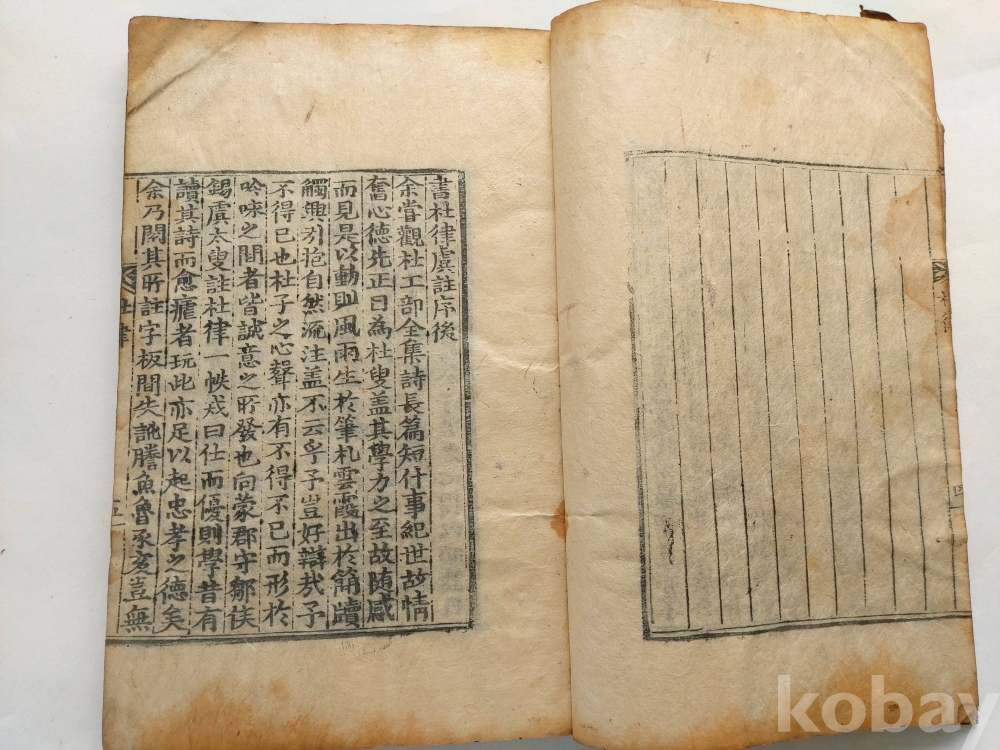 書杜律虞註序後
余嘗觀杜工部全集詩長篇短什事紀世故情
奮心德先正曰為杜叟盖其學力之至故随感
而見是以動則風雨生於筆札雲霞出於簡牘
觸興引抱自然流注盖不云乎予豈好辯㢤予
不得已也杜子之心聲亦有不得不已而形於
吟咏之間者皆誠意之所發也向蒙郡守鄒侯
錫虞太叟註杜律一帙戎曰仕而優則學昔有
讀其詩而愈瘧者玩此亦足以起忠孝之德矣
余乃閱其所註字板間失訛謄魚魯豕亥豈無
杜律
五
四
kobay